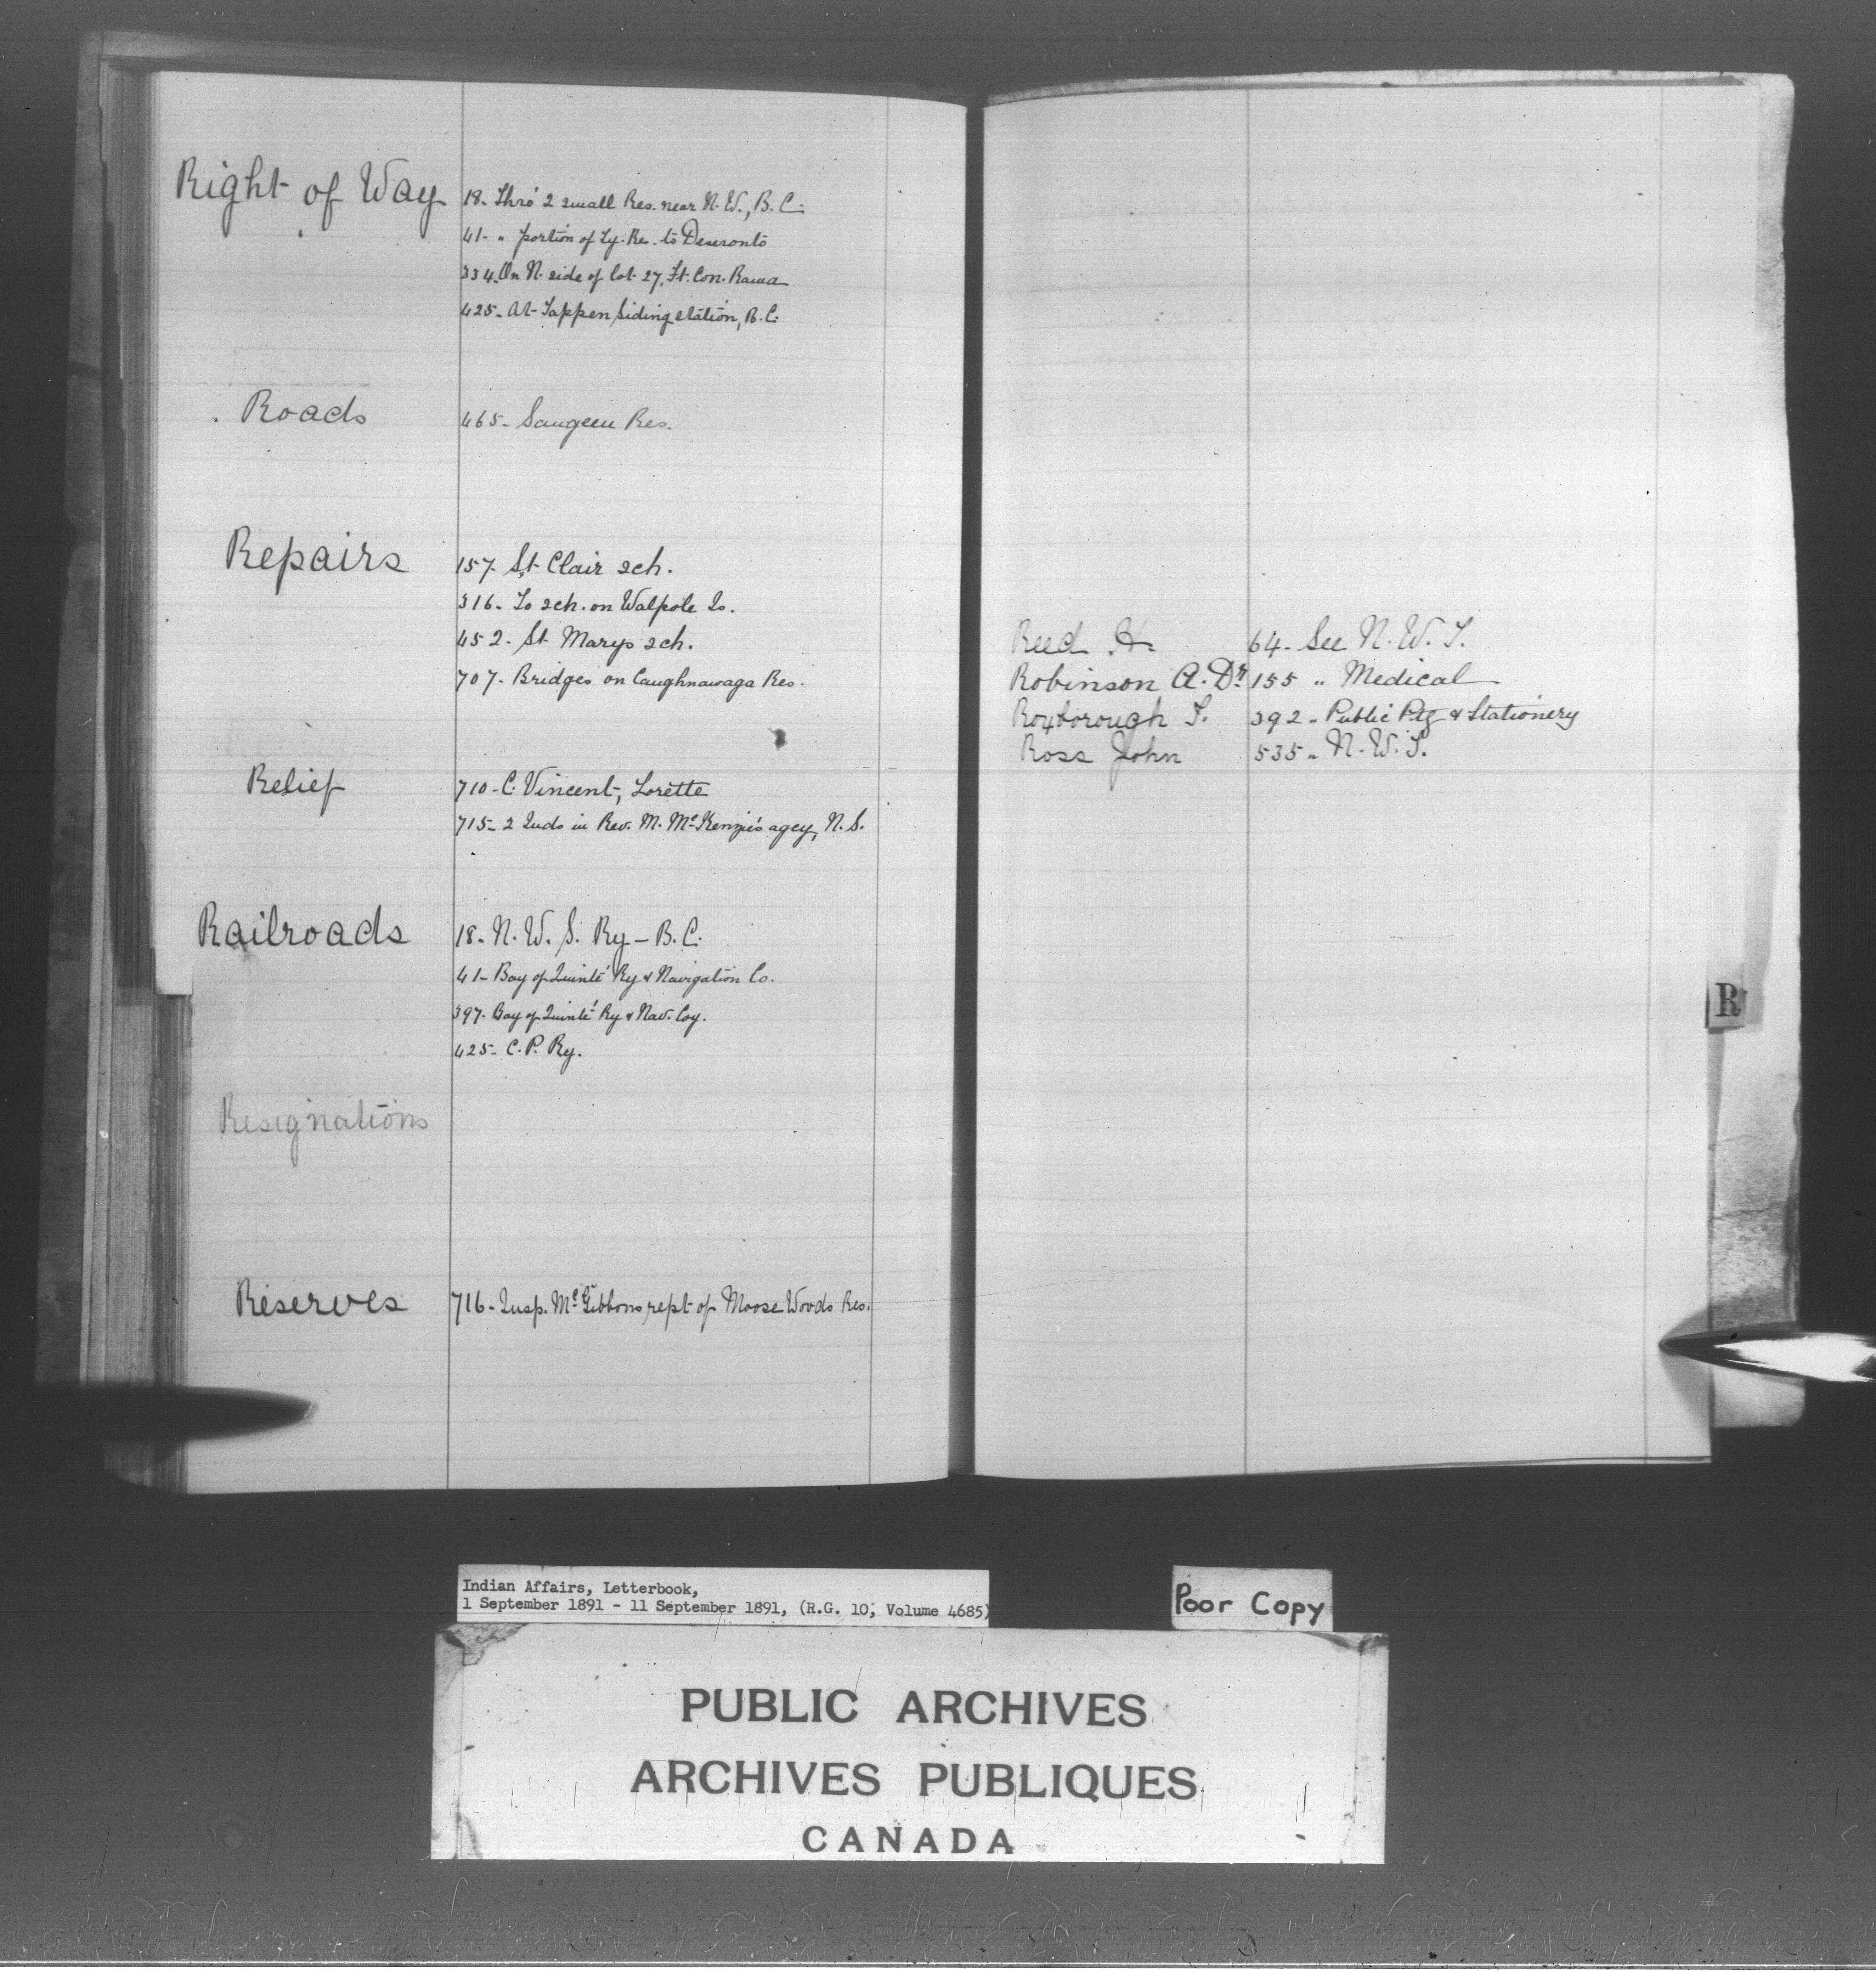 Right of Way 18. Thro' 2 small Res. near N. W., B. C.
41- " portion of Ty. Res. to Deseronto
334. On N. side of lot 27, Ft. Con. Rama
425- At Tappen Siding station, B. C.
Roads 465- Saugeen Res.
Repairs 157. St. Clair sch.
316. To sch. on Walpole Is.
452. St Marys sch.
707. Bridges on Caughnawaga Res.
Relief 710- C. Vincent, Lorette
715- 2 Inds in Rev. M. McKenzie's agcy, N. S.
Railroads 18. N. W. S. Ry - B. C.
41- Bay of Quinté Ry & Navigation Co.
397. Bay of Quinté Ry & Nav. Coy.
425- C. P. Ry.
Resignations
Reserves 716- Insp. McGibbons rept of Moose Woods Res.
Reed H. 64- See N. W. T.
Robinson A. Dr. 155 " Medical
Roxborough T. 392 " Public Ptg & Stationery
Ross John 535 " N. W. T.
R
Indian Affairs, Letterbook,
1 September 1891 - 11 September 1891, (R.G. 10, Volume 4685)
Poor Copy
PUBLIC ARCHIVES
ARCHIVES PUBLIQUES
CANADA